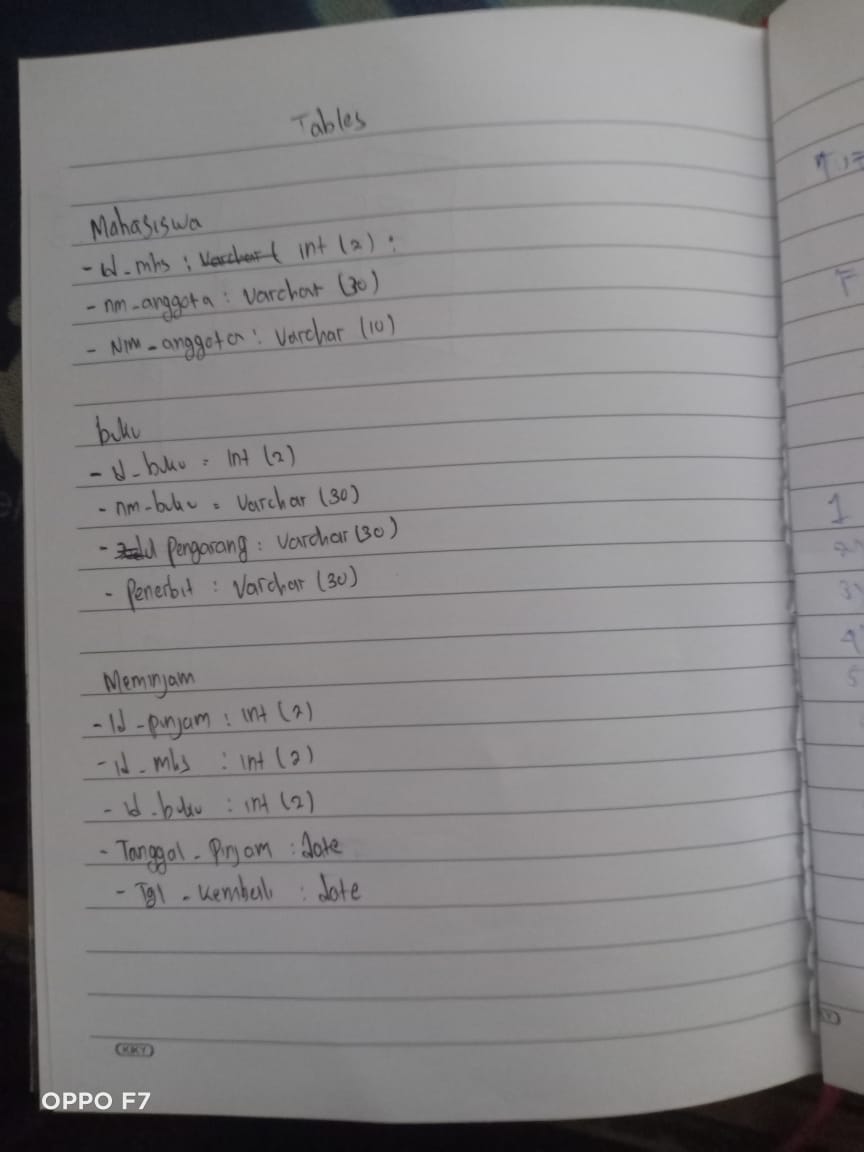 Tables
Mahasiswa
- id_mhs : Varchar( int (2) :
- nm_anggota : Varchar (30)
- Nim_anggota : Varchar (10)
buku
- id_buku = int (2)
- nm_buku = Varchar (30)
- Pengarang : Varchar (30)
- Penerbit : Varchar (30)
Meminjam
- Id_pinjam : int (2)
- id_mhs : int (2)
- id_buku : int (2)
- Tanggal_Pinjam : date
- Tgl_Kembali : date
KKY
OPPO F7
1
2
3
4
5